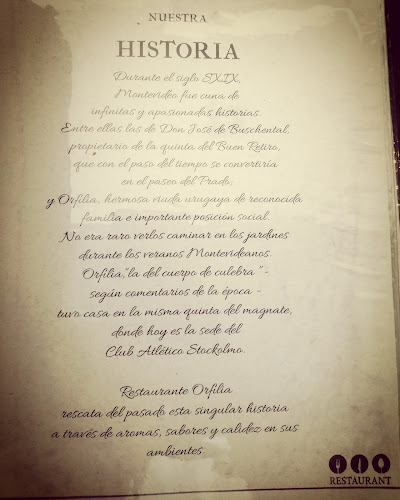 NUESTRA
HISTORIA
Durante el siglo SXIX,
Montevideo fue cuna de
infinitas y apasionadas historias.
Entre ellas las de Don José de Buschental,
propietario de la quinta del Buen Retiro,
que con el paso del tiempo se convertiría
en el paseo del Prado;
y Orfilia, hermosa viuda urugaya de reconocida
familia e importante posición social.
No era raro verlos caminar en los jardines
durante los veranos Montevideanos.
Orfilia,"la del cuerpo de culebra" -
según comentarios de la época -
tuvo casa en la misma quinta del magnate,
donde hoy es la sede del
Club Atlético Stockolmo.
Restaurante Orfilia
rescata del pasado esta singular historia
a través de aromas, sabores y calidez en sus
ambientes.
RESTAURANT